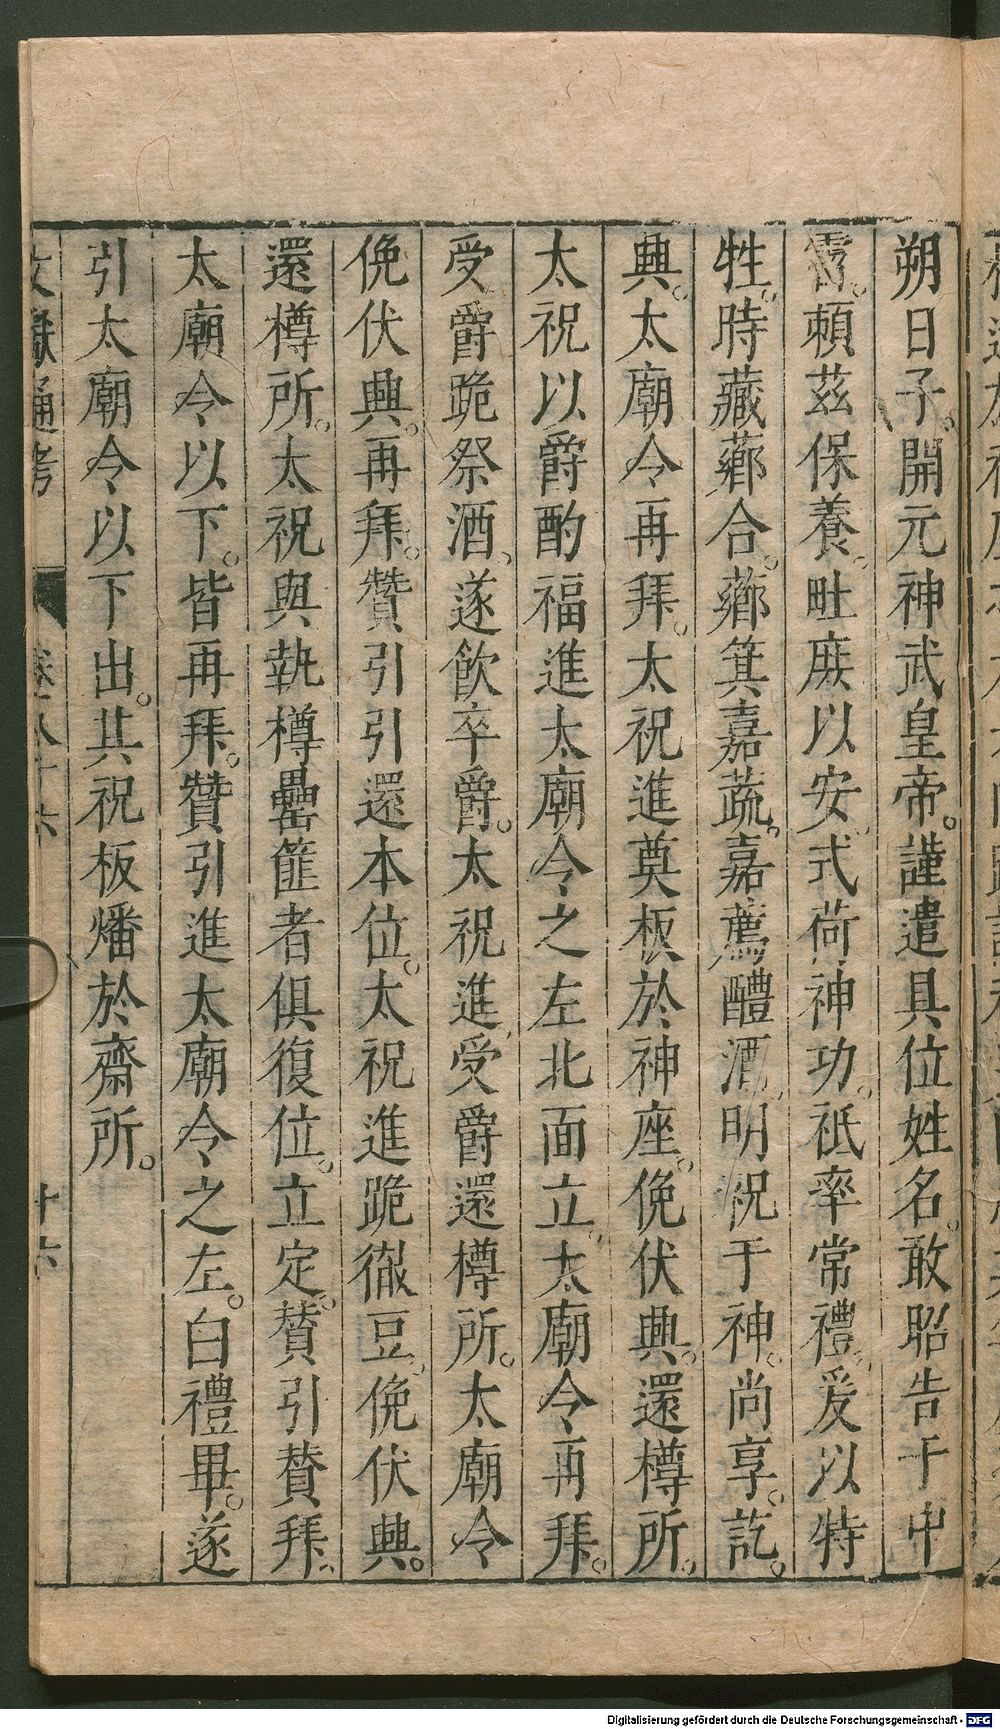 朔日子。開元神武皇帝。謹遣具位姓名。敢昭告于中
霤。頼茲保養。毗庶以安。式荷神功。祗率常禮。爰以特
牲。時藏薌合。薌箕嘉蔬。嘉薦醴酒。明祝于神。尚享。訖。
興。太廟令再拜。太祝進奠板於神座。俛伏興。還樽所。
太祝以爵酌福進太廟令之左北面立。太廟令再拜。
受爵跪祭酒。遂飲卒爵。太祝進受爵還樽所。太廟令
俛伏興。再拜。贊引引還本位。太祝進跪徹豆。俛伏興。
還樽所。太祝與執樽罍篚者俱復位。立定。贊引贊拜。
太廟令以下。皆再拜。贊引進太廟令之左。白禮畢。遂
引太廟令以下出。其祝板燔於齋所。
文獻通考 卷八十六 十六
Digitalisierung gefördert durch die Deutsche Forschungsgemeinschaft - DFG